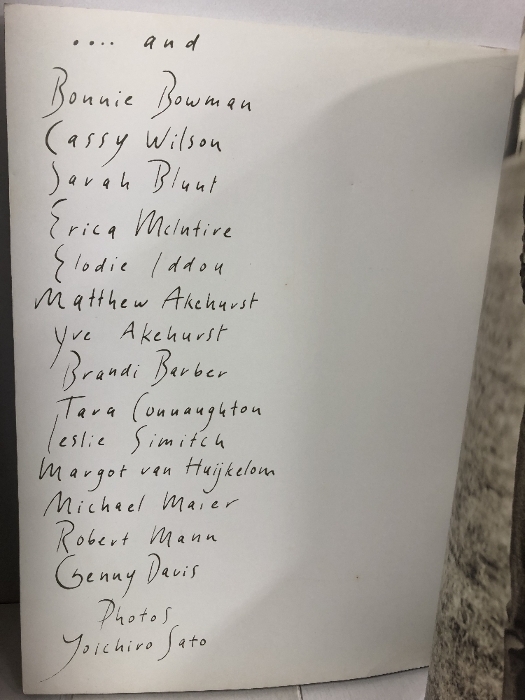 .... and
Bonnie Bowman
Cassy Wilson
Sarah Blunt
Erica McIntire
Elodie Iddon
Matthew Akehurst
Yve Akehurst
Brandi Barber
Tara Connaughton
Leslie Simitch
Margot van Huijkelom
Michael Maier
Robert Mann
Genny Davis
Photos
Yoichiro Sato